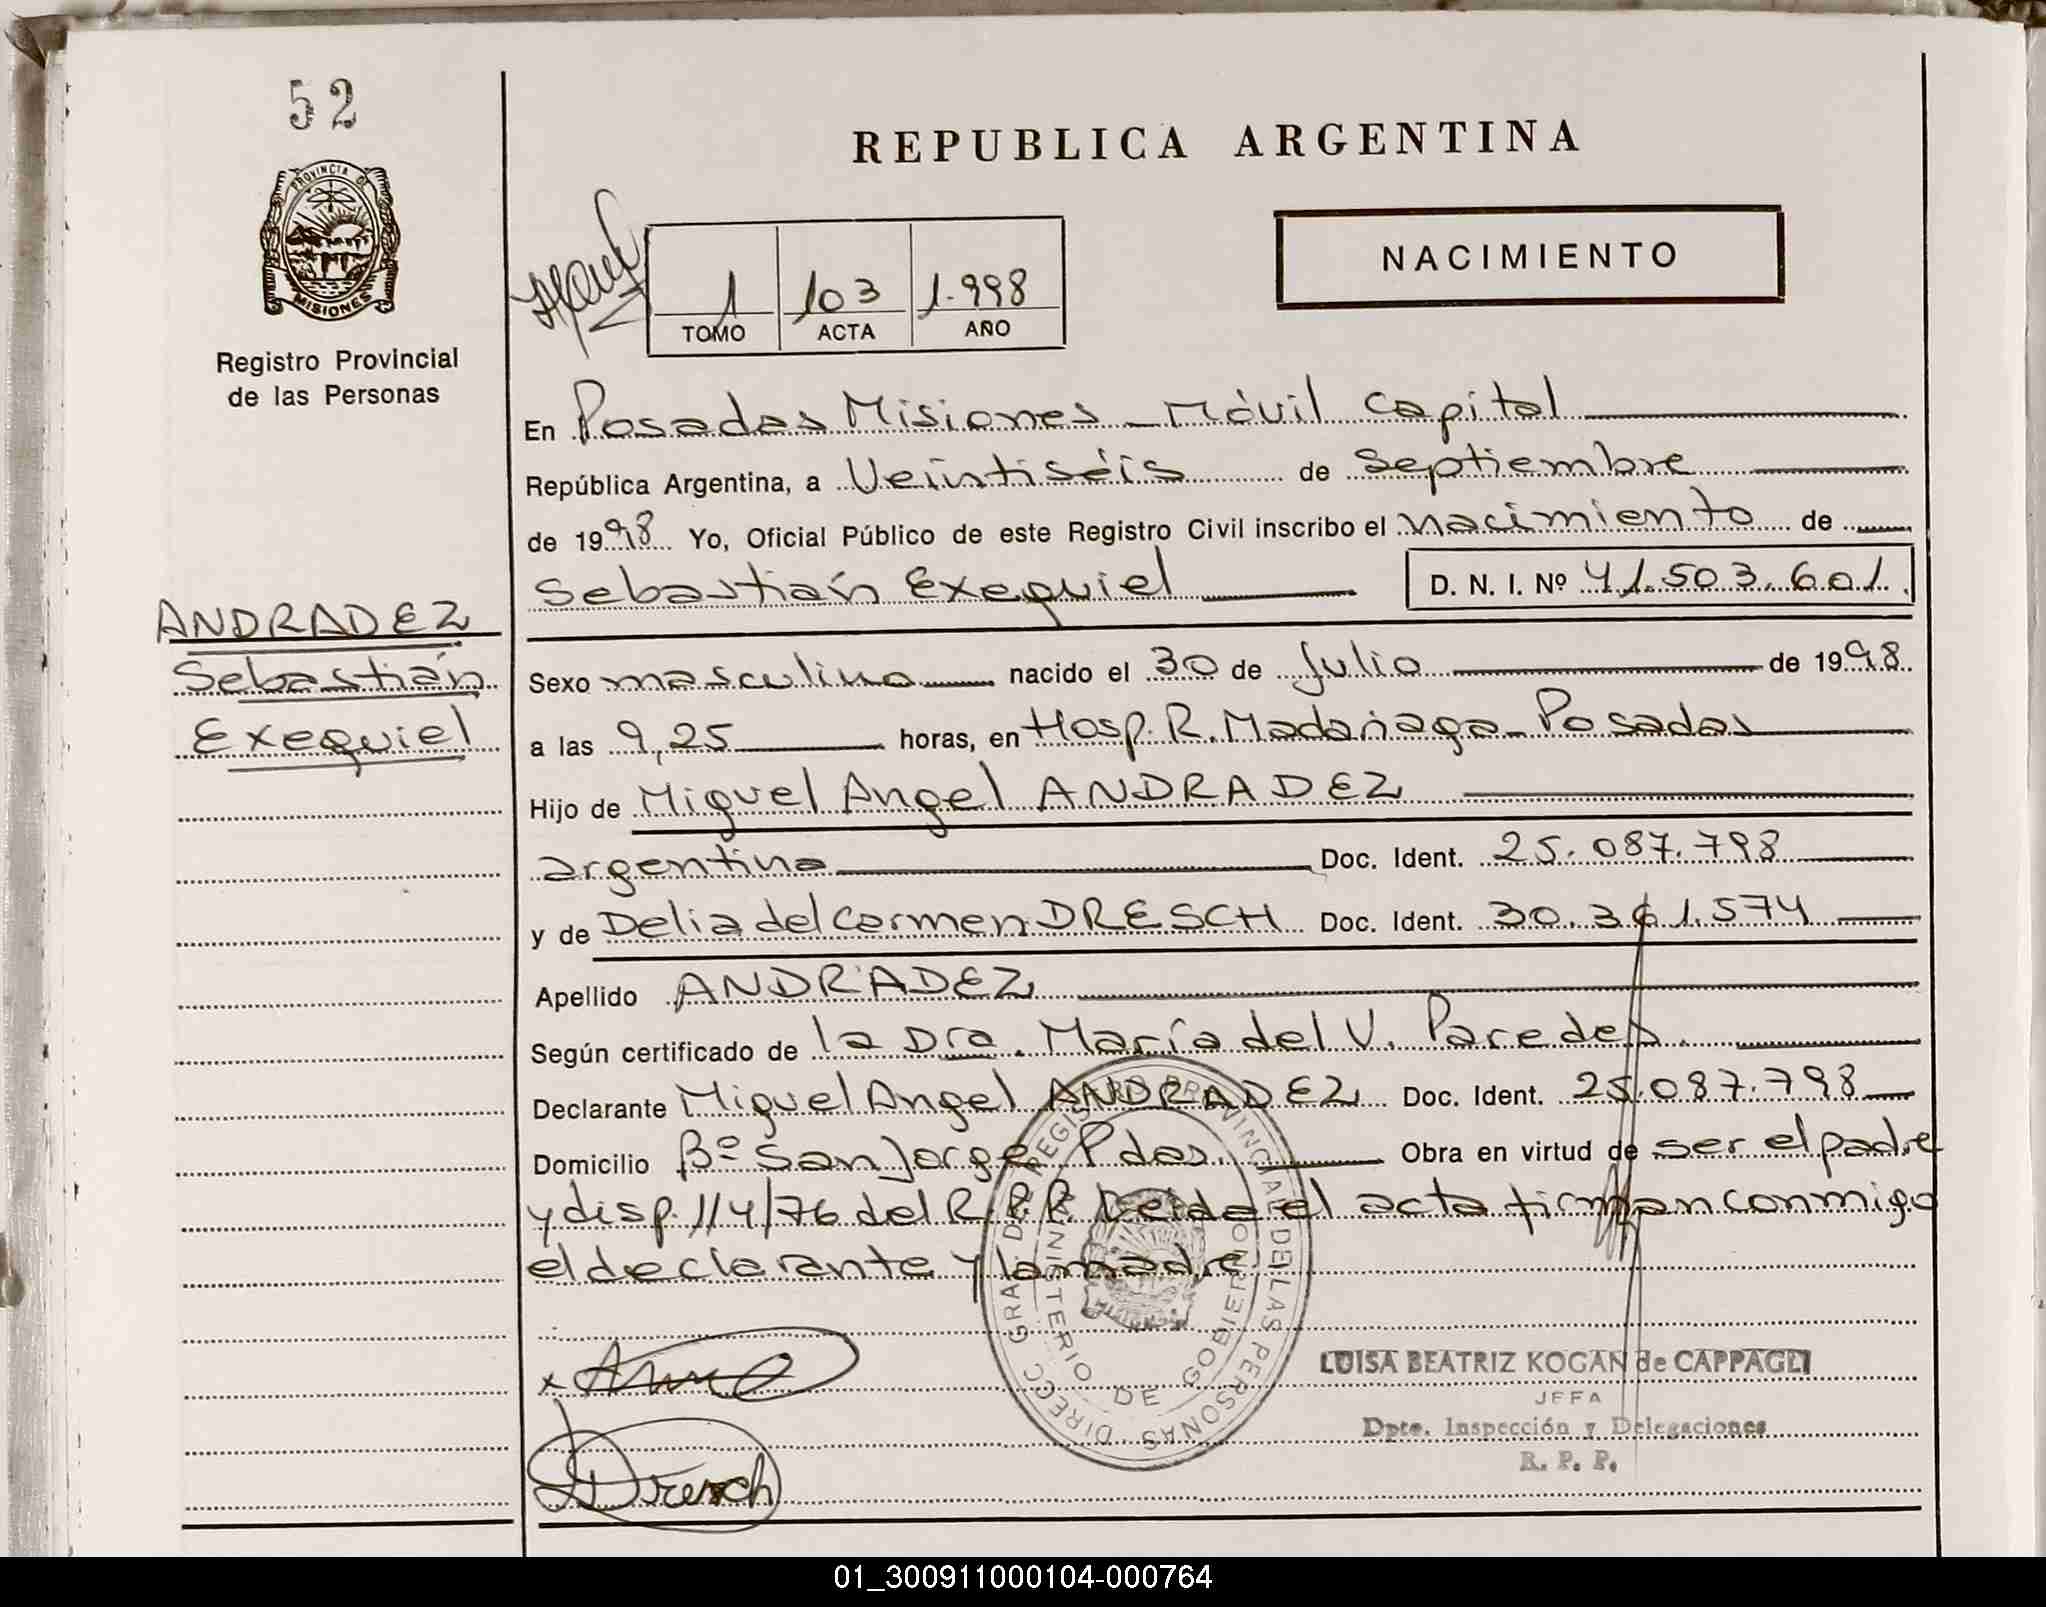 52
REPUBLICA ARGENTINA
PROVINCIA DE
MISIONES
Registro Provincial
de las Personas
1 103 1.998
TOMO ACTA AÑO
NACIMIENTO
En Posadas Misiones - Móvil Capital
República Argentina, a Veintiséis de Septiembre
de 1998 Yo, Oficial Público de este Registro Civil inscribo el nacimiento de
Sebastián Exequiel D. N. I. Nº 41.503.601
ANDRADEZ
Sebastián
Exequiel
Sexo masculino nacido el 30 de Julio de 1998
a las 9,25 horas, en Hosp. R. Madariaga - Posadas
Hijo de Miguel Angel ANDRADEZ
argentino Doc. Ident. 25.087.798
y de Delia del Carmen DRESCH Doc. Ident. 30.361.574
Apellido ANDRADEZ
Según certificado de la Dra. María del V. Paredes.
Declarante Miguel Angel ANDRADEZ Doc. Ident. 25.087.798
Domicilio Bº San Jorge Pdas. Obra en virtud de ser el padre
y disp. 114/76 del R.P.P. Leída el acta firman conmigo
el declarante y la madre
DIRECC. GRAL. DEL REGISTRO PROVINCIAL DE LAS PERSONAS
MINISTERIO DE GOBIERNO
MISIONES
Dresch
LUISA BEATRIZ KOGAN de CAPPAGLI
JEFA
Dpto. Inspección y Delegaciones
R. P. P.
01_300911000104-000764